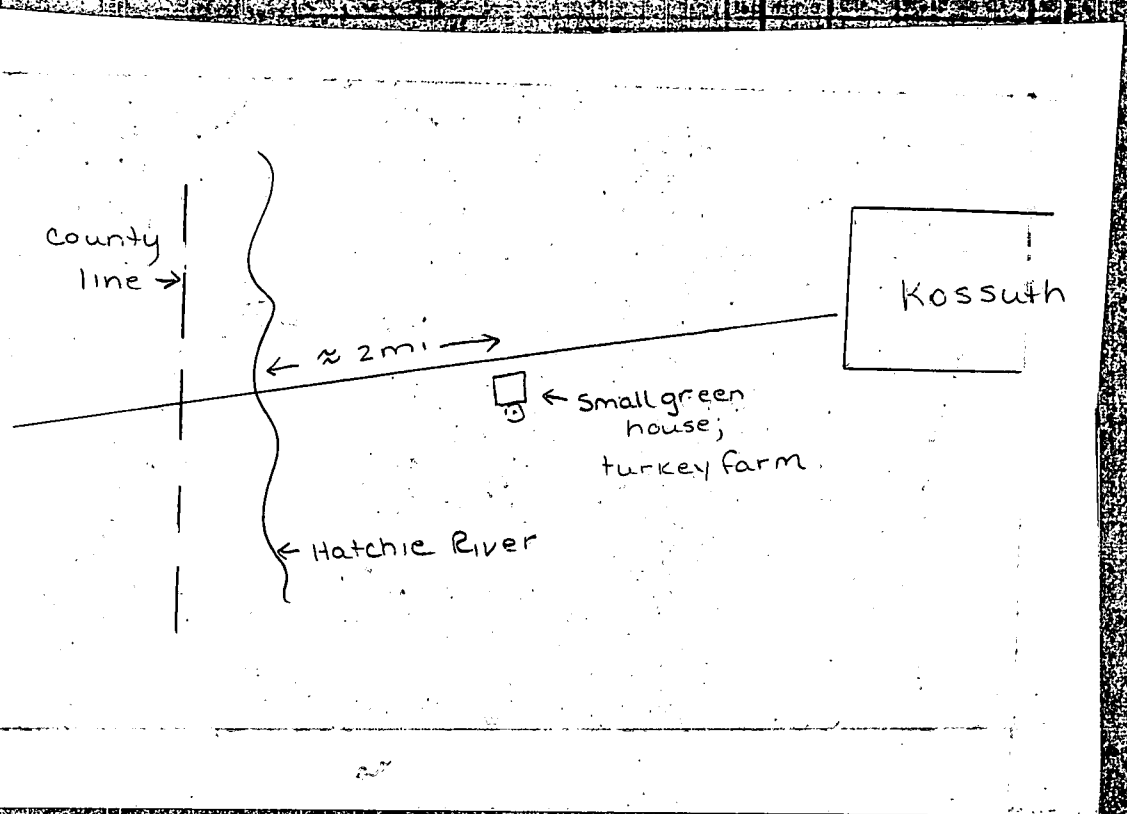 county
line →
Kossuth
← ≈ 2 mi →
← small green
house;
turkey farm
← Hatchie River